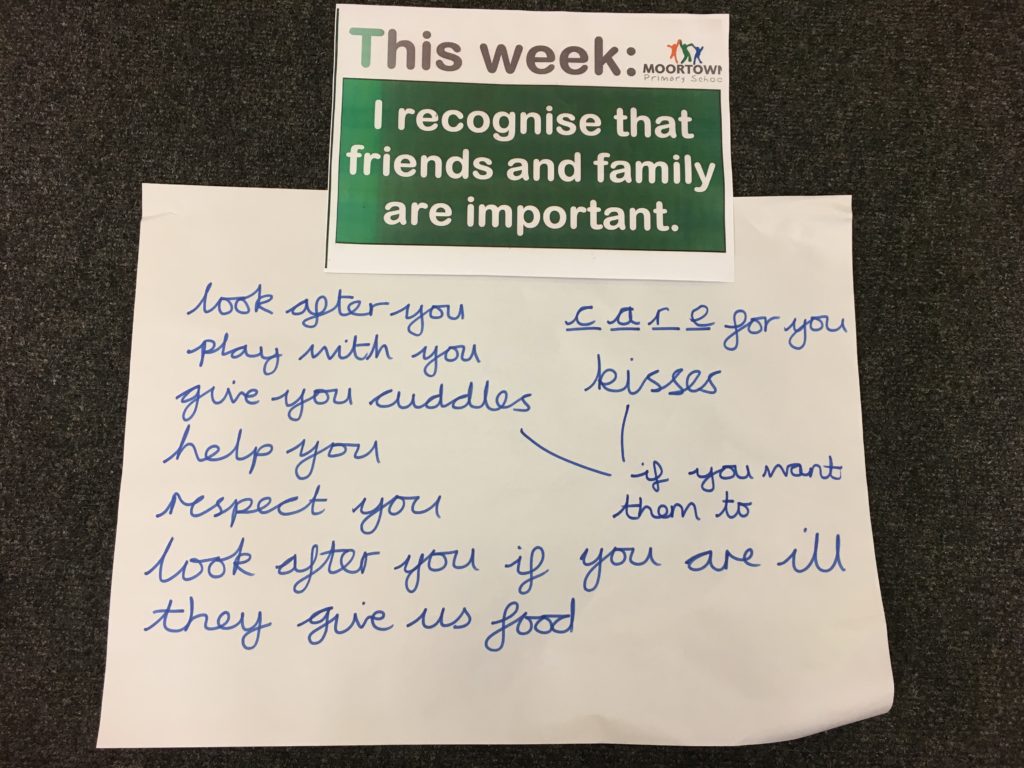 This week:
MOORTOWN
Primary School
I recognise that
friends and family
are important.
look after you
play with you
give you cuddles
help you
respect you
look after you if you are ill
they give us food
care for you
kisses
if you want
them to